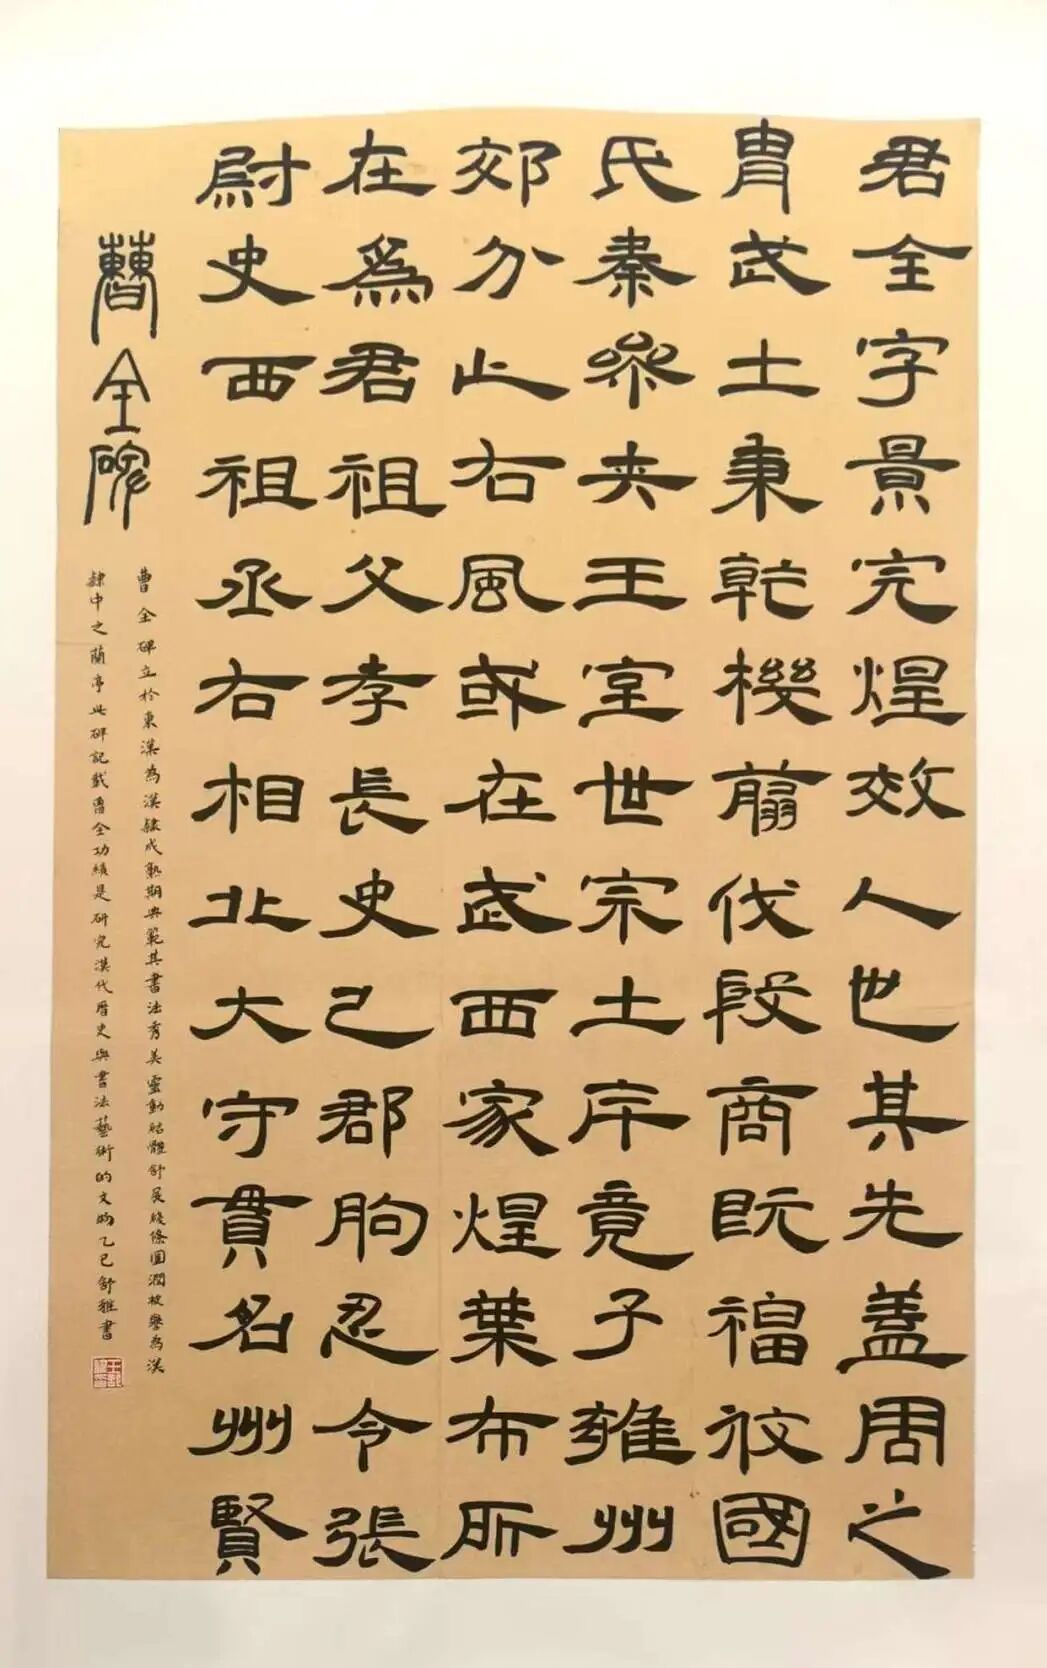 君全字景完煌效人也其先蓋周之
胄武土秉乾機翦伐殷商既福國
氏秦參夾王室世宗土斥竟子雍州
郊分止右風或在武西家煌葉布所
在為君祖父孝長史己郡朐忍令張
尉史西祖丞右相北大守貫名州賢
曹全碑
曹全碑立於東漢為漢隸成熟期典範其書法秀美靈動結體舒展綫條圓潤被譽為漢
隸中之蘭亭此碑記載曹全功績是研究漢代曆史與書法藝術的文物乙巳舒雅書